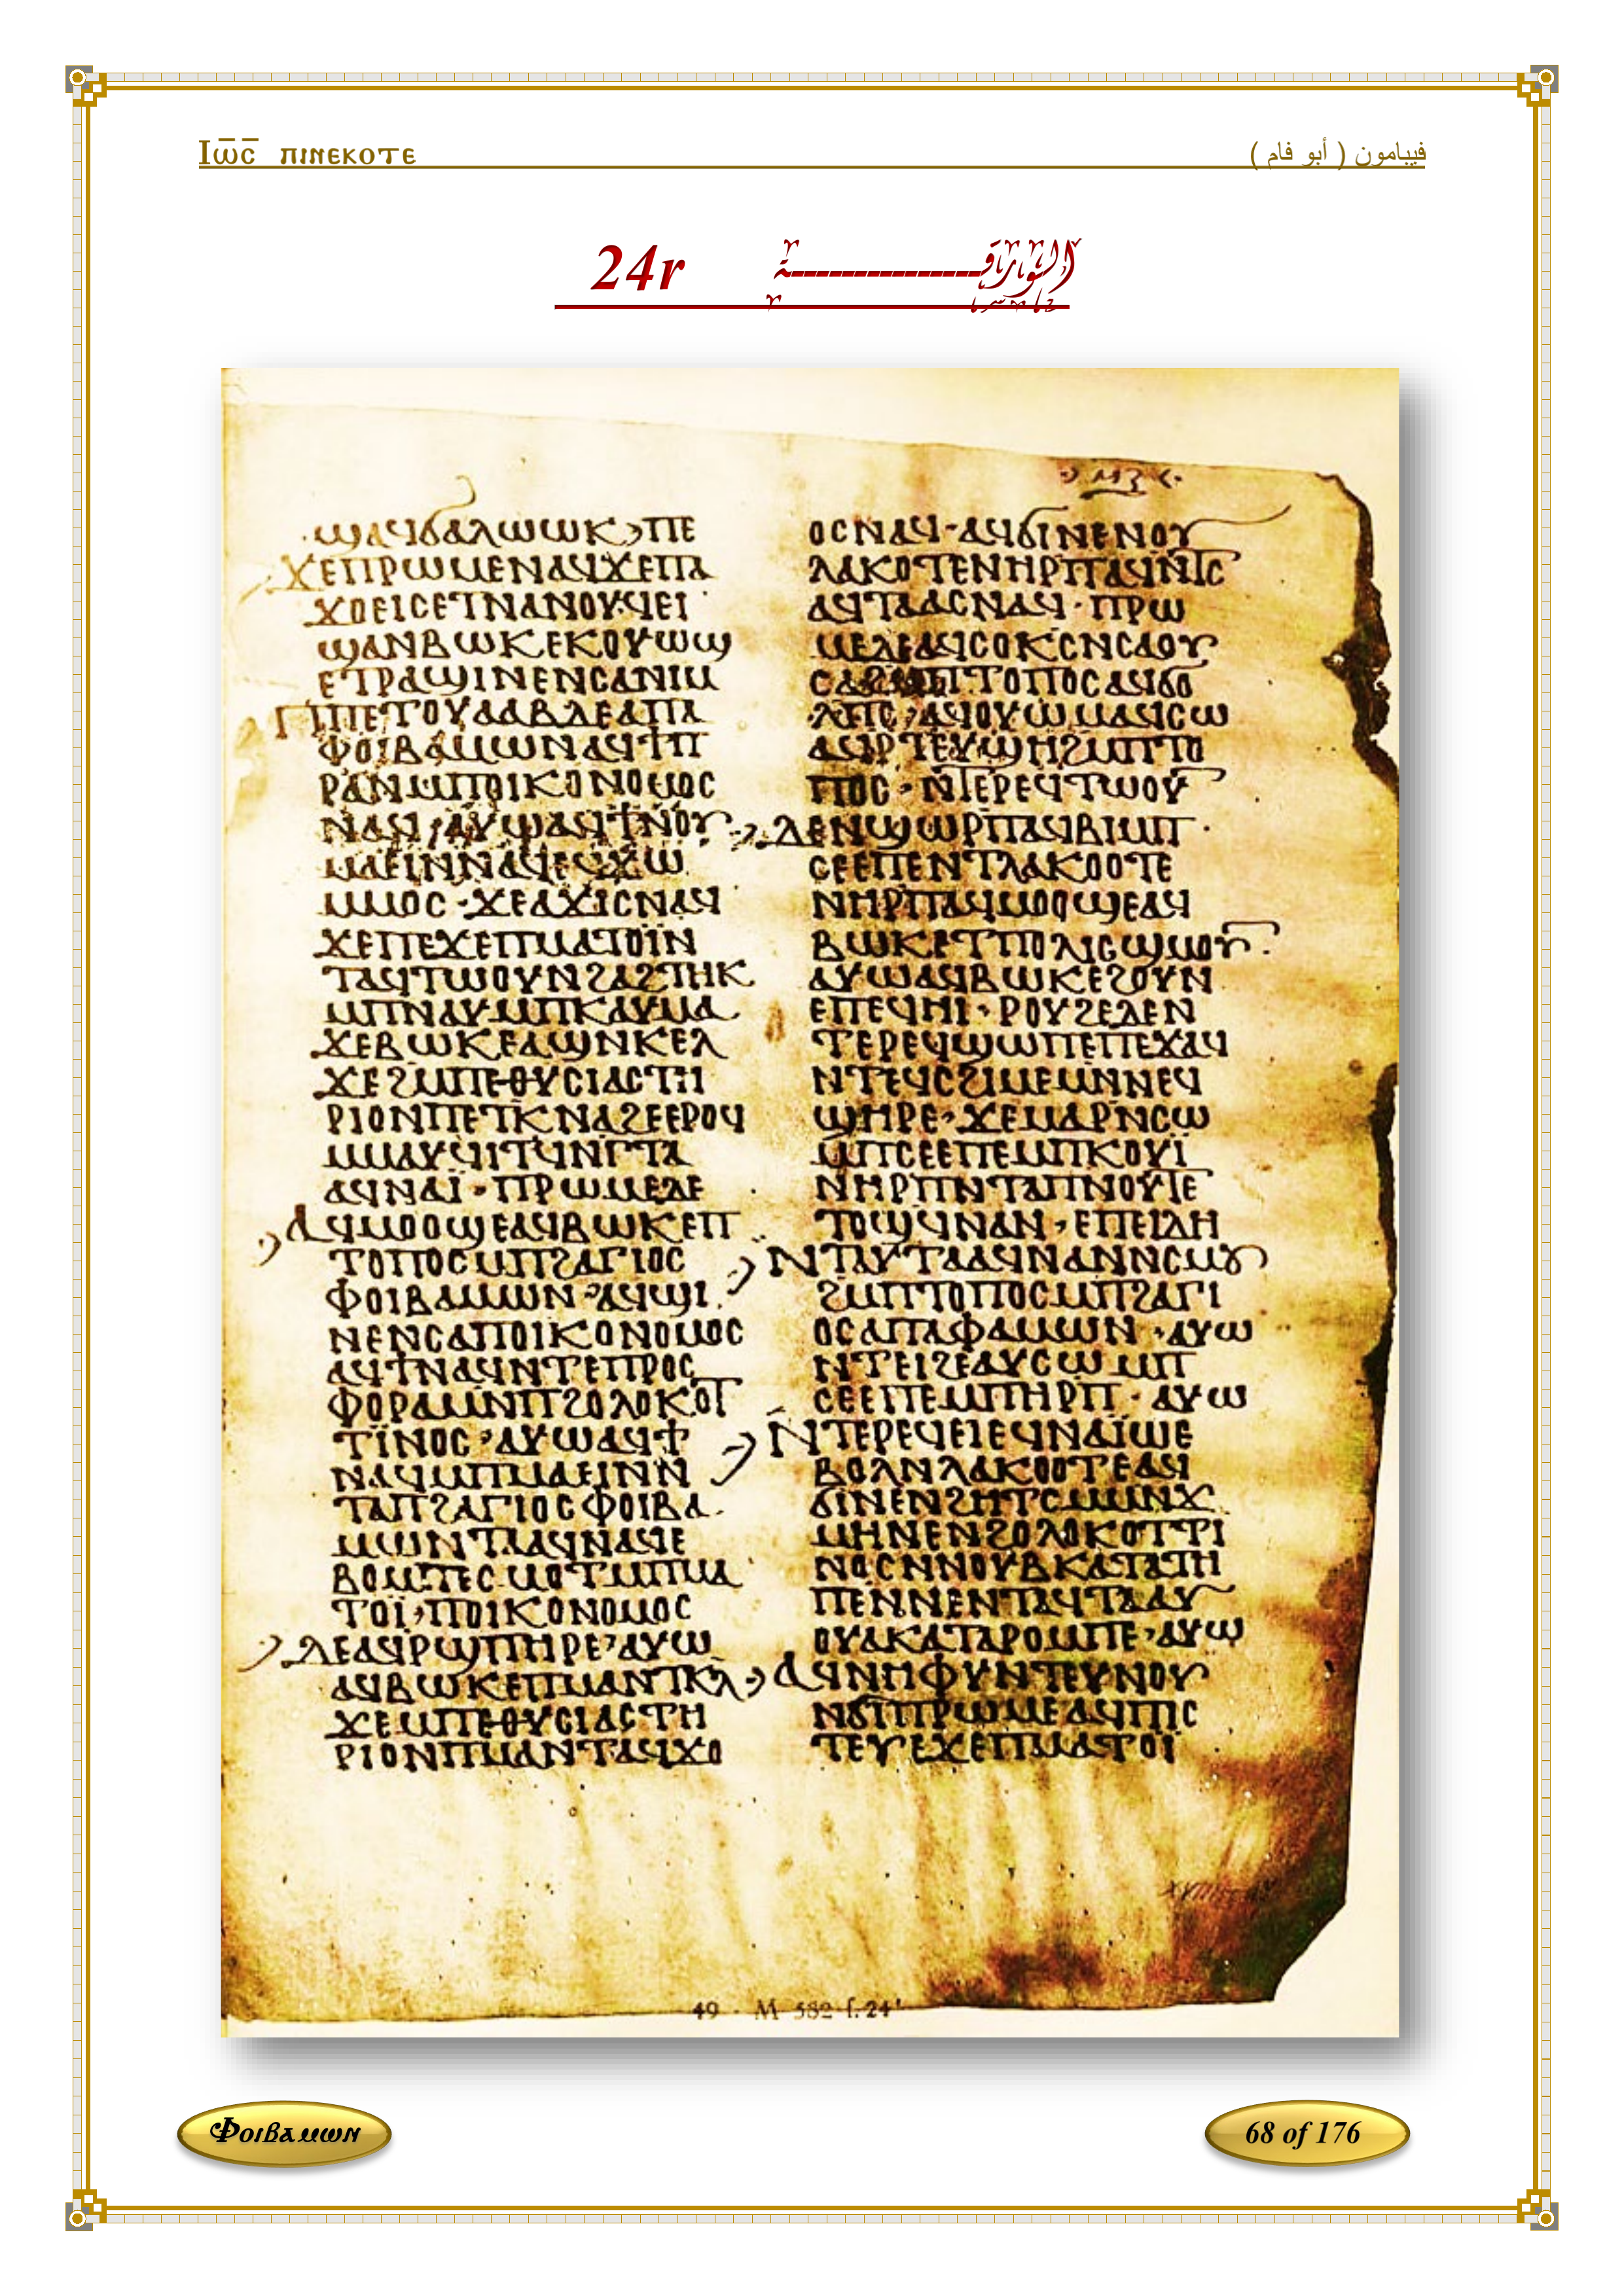 Ⲓⲱ̅ⲥ̅ ⲡⲓⲛⲉⲕⲟⲧⲉ
فيبامون ( أبو فام )
24r الورقـــــة
ϣⲁϥϭⲁⲗⲱⲱⲕ ⲡⲉ
ϫⲉⲡⲣⲱⲙⲉⲛⲁϥϫⲉⲡⲁ
ϫⲟⲉⲓⲥⲉⲧⲛⲁⲛⲟⲩϥⲉⲓ
ϣⲁⲛⲃⲱⲕⲉⲕⲟⲩⲱϣ
ⲉⲧⲣⲁϣⲓⲛⲉⲛⲥⲁⲛⲓⲙ
ⲡⲡⲉⲧⲟⲩⲁⲁⲃⲇⲉⲁⲡⲁ
ⲫⲟⲓⲃⲁⲙⲱⲛⲁϥϯⲡ
ⲣⲁⲛⲙⲡⲟⲓⲕⲟⲛⲟⲙⲟⲥ
ⲛⲁϥ ⲁⲩⲱⲁϥϯⲛⲟⲩ
ⲙⲁⲉⲓⲛⲛⲁϥⲉϥϫⲱ
ⲙⲙⲟⲥ ϫⲉⲁϫⲓⲥⲛⲁϥ
ϫⲉⲡⲉϫⲉⲡⲙⲁⲧⲟⲓ̈ⲛ
ⲧⲁϥⲧⲱⲟⲩⲛϩⲁϩⲧⲏⲕ
ⲙⲡⲛⲁⲩⲙⲡⲕⲁⲩⲙⲁ
ϫⲉⲃⲱⲕⲉⲁϣⲛⲕⲉⲗ
ϫⲉϩⲙⲡⲉⲑⲩⲥⲓⲁⲥⲧⲏ
ⲣⲓⲟⲛⲡⲉⲧⲕⲛⲁϩⲉⲉⲣⲟϥ
ⲙⲙⲁⲩϥⲓⲧϥⲛⲅⲧⲁ
ⲁϥⲛⲁⲓ̈ ⲡⲣⲱⲙⲉⲇⲉ
ⲁϥⲙⲟⲟϣⲉⲁϥⲃⲱⲕⲉⲡ
ⲧⲟⲡⲟⲥⲙⲡϩⲁⲅⲓⲟⲥ
ⲫⲟⲓⲃⲁⲙⲱⲛ ⲁϥϣⲓ
ⲛⲉⲛⲥⲁⲡⲟⲓⲕⲟⲛⲟⲙⲟⲥ
ⲁϥϯⲛⲁϥⲛⲧⲉⲡⲣⲟⲥ
ⲫⲟⲣⲁⲙⲛⲡϩⲟⲗⲟⲕⲟⲧ
ⲧⲓ̈ⲛⲟⲥ ⲁⲩⲱⲁϥϯ
ⲛⲁϥⲙⲡⲙⲁⲉⲓⲛⲛ
ⲧⲁⲡϩⲁⲅⲓⲟⲥⲫⲟⲓⲃⲁ
ⲙⲱⲛⲧⲁⲁϥⲛⲁϥⲉ
ⲃⲟⲙⲡⲉⲥⲙⲟⲧⲙⲡⲙⲁ
ⲧⲟⲓ̈ ⲡⲟⲓⲕⲟⲛⲟⲙⲟⲥ
ⲇⲉⲁϥⲣϣⲡⲏⲣⲉ ⲁⲩⲱ
ⲁϥⲃⲱⲕⲉⲡⲙⲁⲛⲧⲕⲗ
ϫⲉⲙⲡⲉⲑⲩⲥⲓⲁⲥⲧⲏ
ⲣⲓⲟⲛⲡⲙⲁⲛⲧⲁϥϫⲟ
ⲙⲍ
ⲟⲥⲛⲁϥ ⲁϥϭⲓⲛⲉⲛⲟⲩ
ⲗⲁⲕⲟⲧⲉⲛⲏⲣⲡⲁϥⲛⲧⲥ
ⲁϥⲧⲁⲁⲥⲛⲁϥ ⲡⲣⲱ
ⲙⲉⲇⲉⲁϥⲥⲟⲕⲥⲛⲥⲁⲟⲩ
ⲡⲧⲟⲡⲟⲥⲁϥϭⲟ
ⲗⲡⲥ ⲁϥⲟⲩⲱⲙⲁϥⲥⲱ
ⲁϥⲣⲧⲉⲩϣⲏϩⲙⲡⲧⲟ
ⲡⲟⲥ ⲛⲧⲉⲣⲉϥⲧⲱⲟⲩ
ⲇⲉⲛϣⲱⲣⲡⲁϥⲃⲓⲙⲡ
ⲥⲉⲉⲡⲉⲛⲧⲗⲁⲕⲟⲟⲧⲉ
ⲛⲏⲣⲡⲁϥⲙⲟⲟϣⲉⲁϥ
ⲃⲱⲕⲉⲧⲡⲟⲗⲓⲥϣⲙⲟⲩ
ⲁⲩⲱⲁϥⲃⲱⲕⲉϩⲟⲩⲛ
ⲉⲡⲉϥⲏⲓ ⲣⲟⲩϩⲉⲇⲉⲛ
ⲧⲉⲣⲉϥϣⲱⲡⲉⲡⲉϫⲁϥ
ⲛⲧⲉϥⲥϩⲓⲙⲉⲙⲛⲛⲉϥ
ϣⲏⲣⲉ ϫⲉⲙⲁⲣⲛⲥⲱ
ⲙⲡⲥⲉⲉⲡⲉⲙⲡⲕⲟⲩⲓ̈
ⲛⲏⲣⲡⲛⲧⲁⲡⲛⲟⲩⲧⲉ
ⲧⲟϣϥⲛⲁⲛ ⲉⲡⲉⲓⲇⲏ
ⲛⲧⲁⲩⲧⲁⲁϥⲛⲁⲛⲛⲥⲙⲟⲩ
ϩⲙⲡⲧⲟⲡⲟⲥⲙⲡϩⲁⲅⲓ
ⲟⲥⲁⲡⲁⲫⲁⲙⲱⲛ ⲁⲩⲱ
ⲛⲧⲉⲓϩⲉⲁⲩⲥⲱⲙⲡ
ⲥⲉⲉⲡⲉⲙⲡⲏⲣⲡ ⲁⲩⲱ
ⲛⲧⲉⲣⲉϥⲉⲓⲉϥⲛⲁⲓ̈ⲱⲉ
ⲃⲟⲗⲛⲗⲁⲕⲟⲟⲧⲉⲁϥ
ϭⲓⲛⲉⲛϩⲏⲧⲥⲙⲙⲛⲧ
ⲙⲏⲛⲉⲛϩⲟⲗⲟⲕⲟⲧⲧⲓ
ⲛⲟⲥⲛⲛⲟⲩⲃⲕⲁⲧⲁⲧⲏ
ⲡⲉⲛⲛⲉⲛⲧⲁϥⲧⲁⲁⲩ
ⲟⲩⲁⲕⲁⲧⲁⲣⲟⲙⲡⲉ ⲁⲩⲱ
ⲁϥⲛⲏⲫⲩⲛⲧⲉⲩⲛⲟⲩ
ⲛϭⲓⲡⲣⲱⲙⲉⲁϥⲡⲓⲥ
ⲧⲉⲩⲉϫⲉⲡⲙⲁⲧⲟⲓ̈
49 M 582 f. 24r
Ⲫⲟⲓⲃⲁⲙⲱⲛ
68 of 176